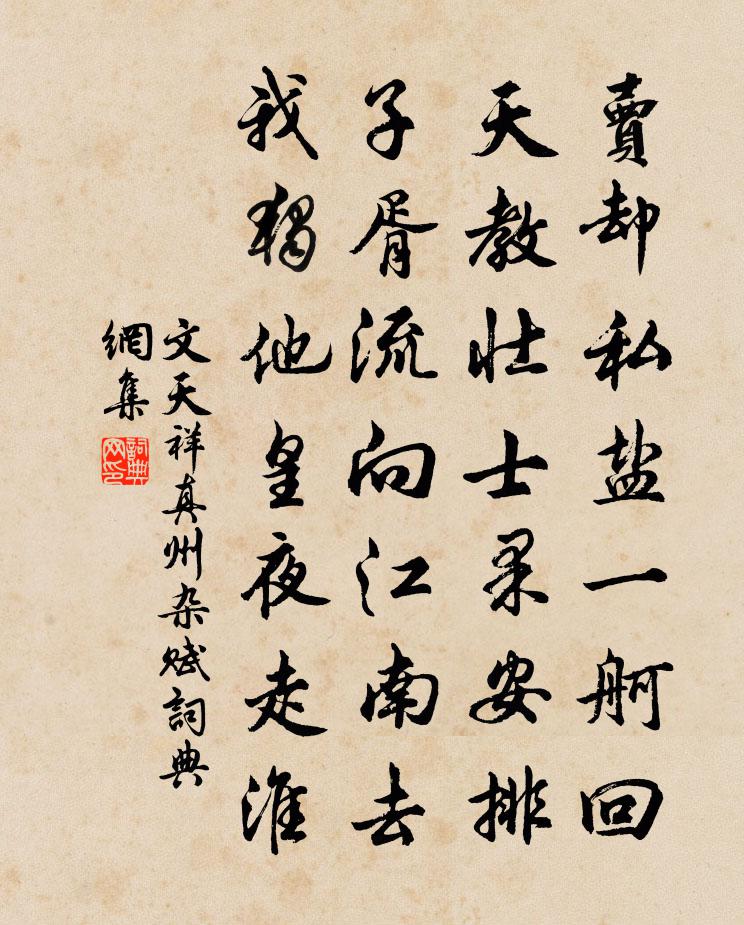 賣却私盐一舸回
天教壮士果安排
子胥流向江南去
我獨他皇夜走淮
文天祥真州杂赋詞典
網集
詞典网印